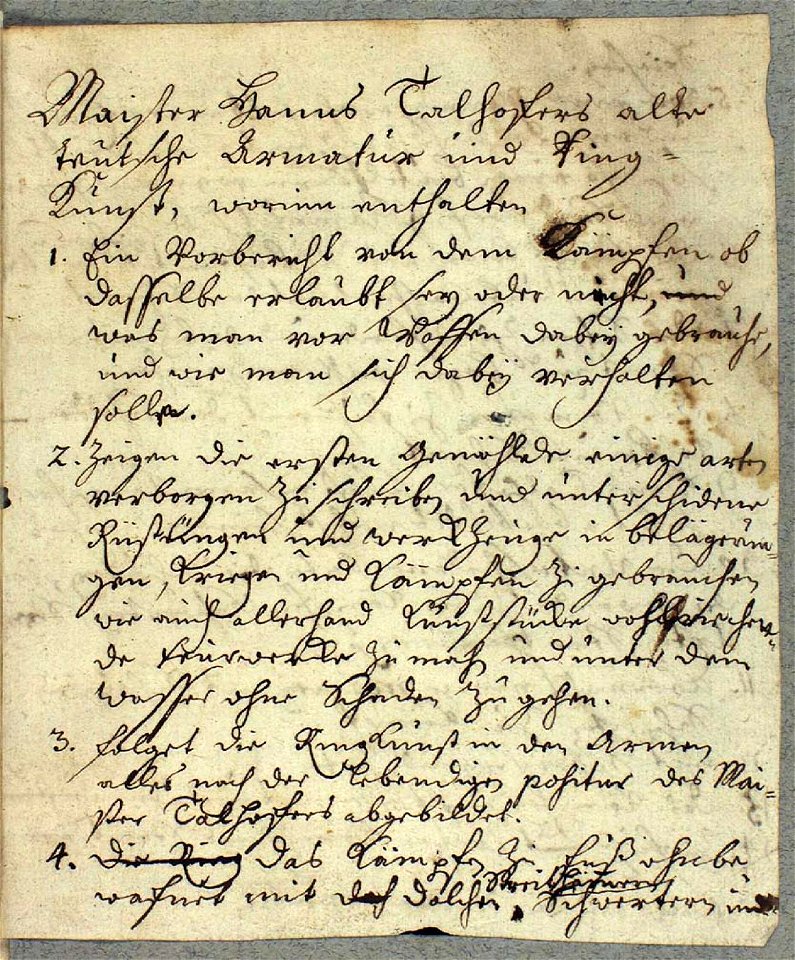 Maister Hanns Talhofers alte
teütsche Armatur und Ring-
Kunst, worinn enthalten
1. Ein Vorbericht von dem Kämpfen ob
dasselbe erlaubt sey oder nicht, und
was man vor Waffen dabey gebrauche,
und wie man sich dabey verhalten
solle.
2. Zeigen die ersten Gemählde einige arten
verborgen zu schreiben und unterschidene
Rüstungen und werckzeuge in belägerun-
gen, Kriegen und Kämpfen zu gebrauchen
wie auch allerhand Kunststücke wohlriechen-
de feurwercke zu mach und unter dem
wasser ohne Schaden zu gehen.
3. folget die Ringkunst in den Armen
alles nach der lebendigen positur des Mai-
ster Talhoffers abgebildet.
4. die Ring das Kämpfen zu fuß ohnbe
wafnet mit dolchen, Schwertern und